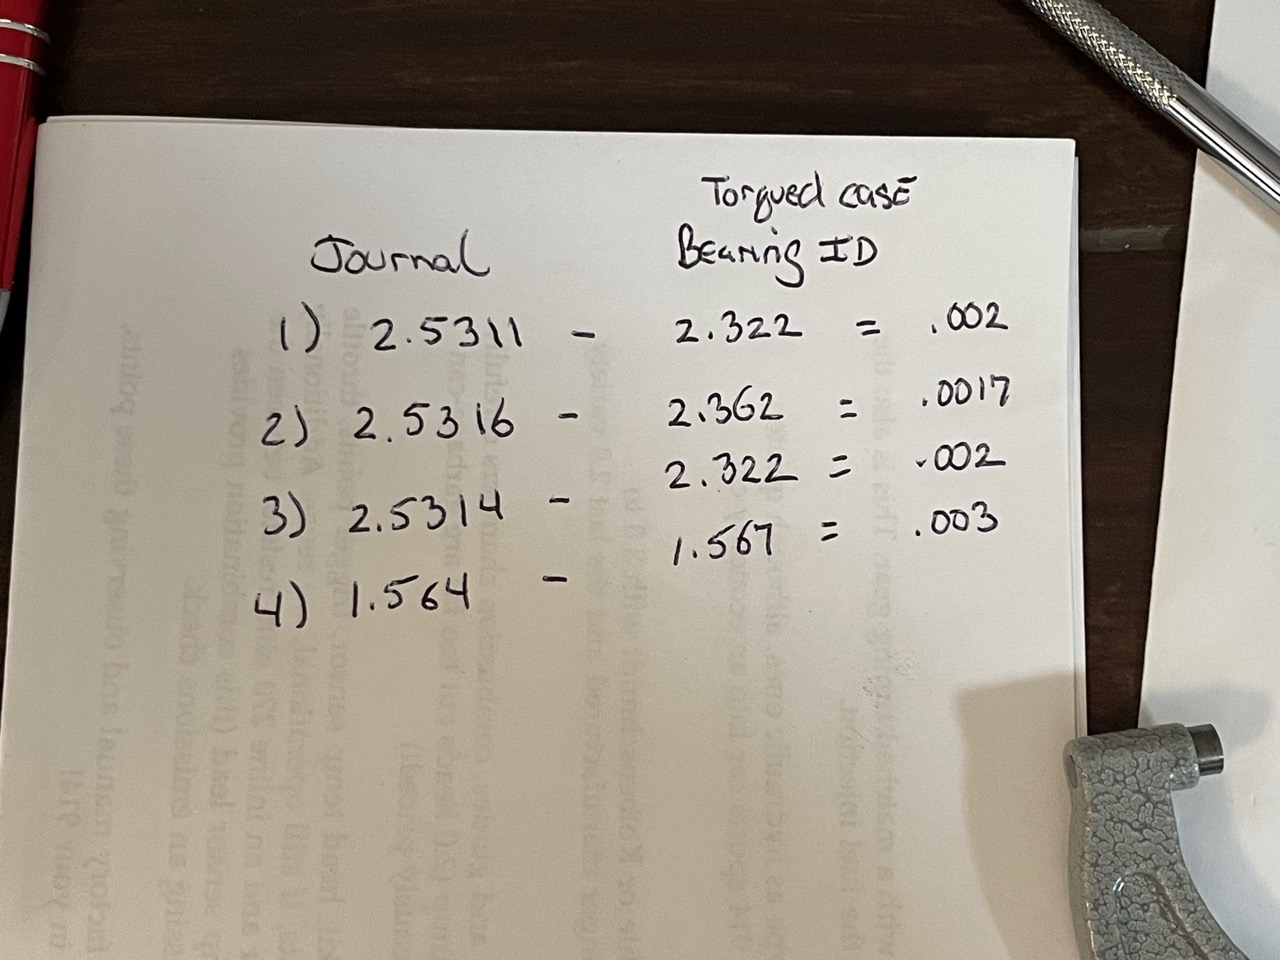 Torqued case
Journal Bearing ID
1) 2.5311 - 2.322 = .002
2) 2.5316 - 2.362 = .0017
3) 2.5314 - 2.322 = .002
4) 1.564 - 1.567 = .003